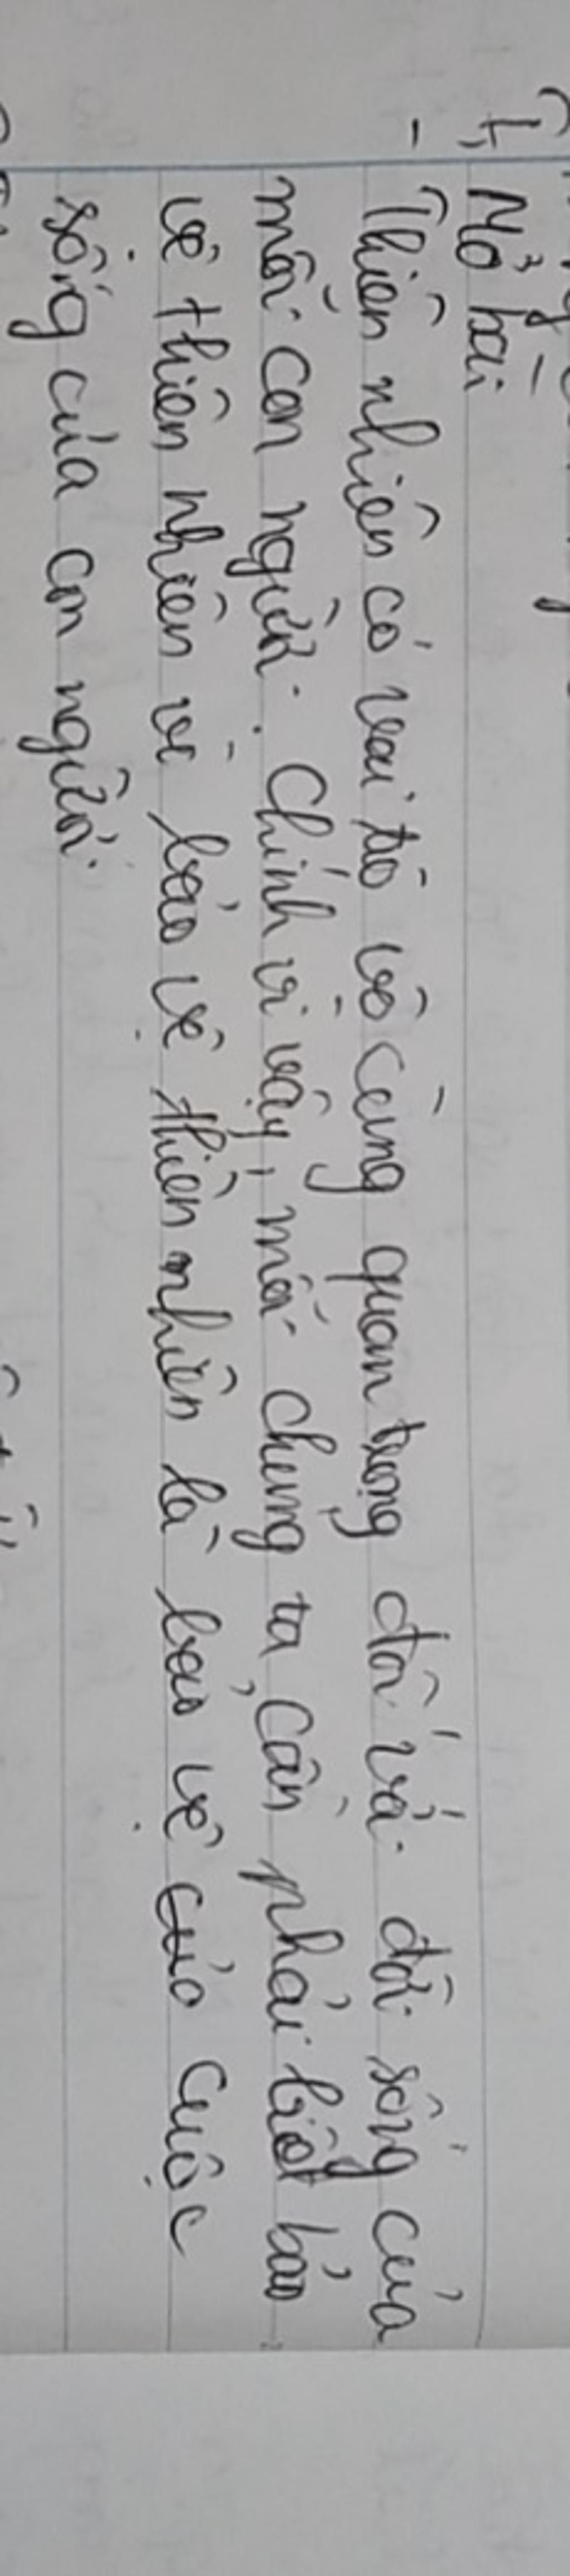 I, Mở bài
- Thiên nhiên có vai trò vô cùng quan trọng đối với đời sống của
mỗi con người. Chính vì vậy, mỗi chúng ta cần phải biết bảo
vệ thiên nhiên vì bảo vệ thiên nhiên là bảo vệ của cuộc
sống của con người.